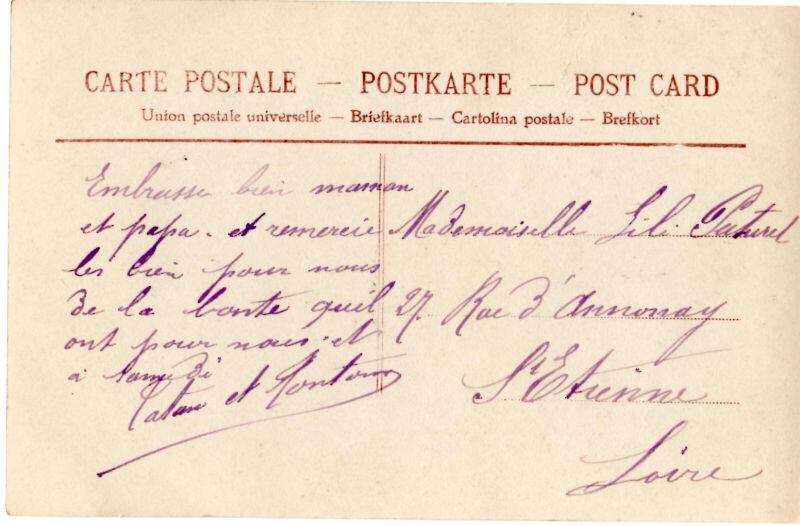 CARTE POSTALE — POSTKARTE — POST CARD
Union postale universelle — Briefkaart — Cartolina postale — Brefkort
Embrasse bien maman
et papa. et remercie
les bien pour nous
de la bonte quil
ont pour nous. et
a samedi
et
Mademoiselle Lili
27 Rue d'Annonay
St Etienne
Loire